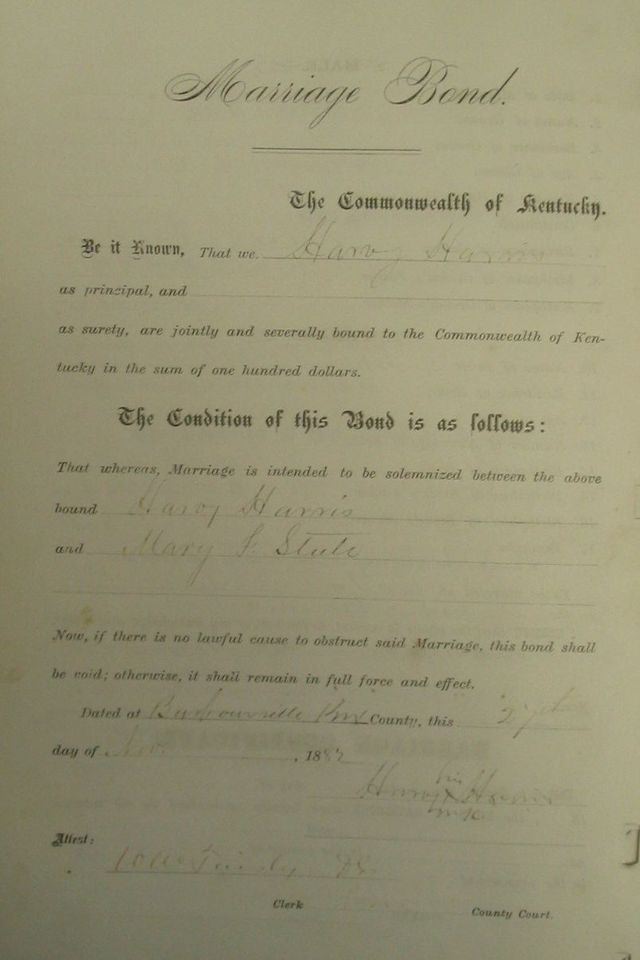 Marriage Bond.
The Commonwealth of Kentucky.
Be it Known, That we, Harvy Harris
as principal, and
as surety, are jointly and severally bound to the Commonwealth of Ken-
tucky in the sum of one hundred dollars.
The Condition of this Bond is as follows:
That whereas, Marriage is intended to be solemnized between the above
bound Harvy Harris
and Mary
Now, if there is no lawful cause to obstruct said Marriage, this bond shall
be void; otherwise, it shall remain in full force and effect.
Dated at Barbourville Knox County, this 27
day of Nov , 188
his
Harvy X Harris
Attest:
Clerk County Court.